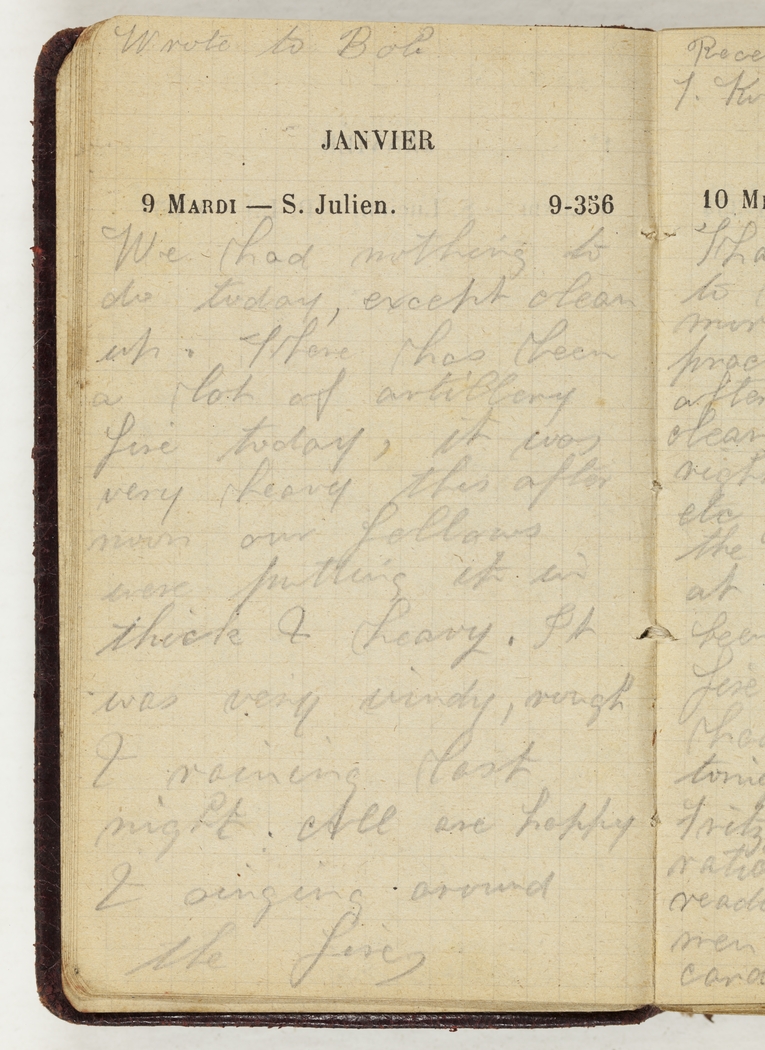 Wrote to Bob
JANVIER
9 MARDI — S. Julien. 9-356
We had nothing to
do today, except clean
up. There has been
a lot of artillery
fire today, it was
very heavy this after
noon our fellows
were putting it in
thick & heavy. It
was very windy, rough
& raining last
night. All are happy
& singing around
the fire,
Rece
10 M
to
prac
after
clean
right
etc
the
at
been
fire
had
Fritz
ratio
read
men